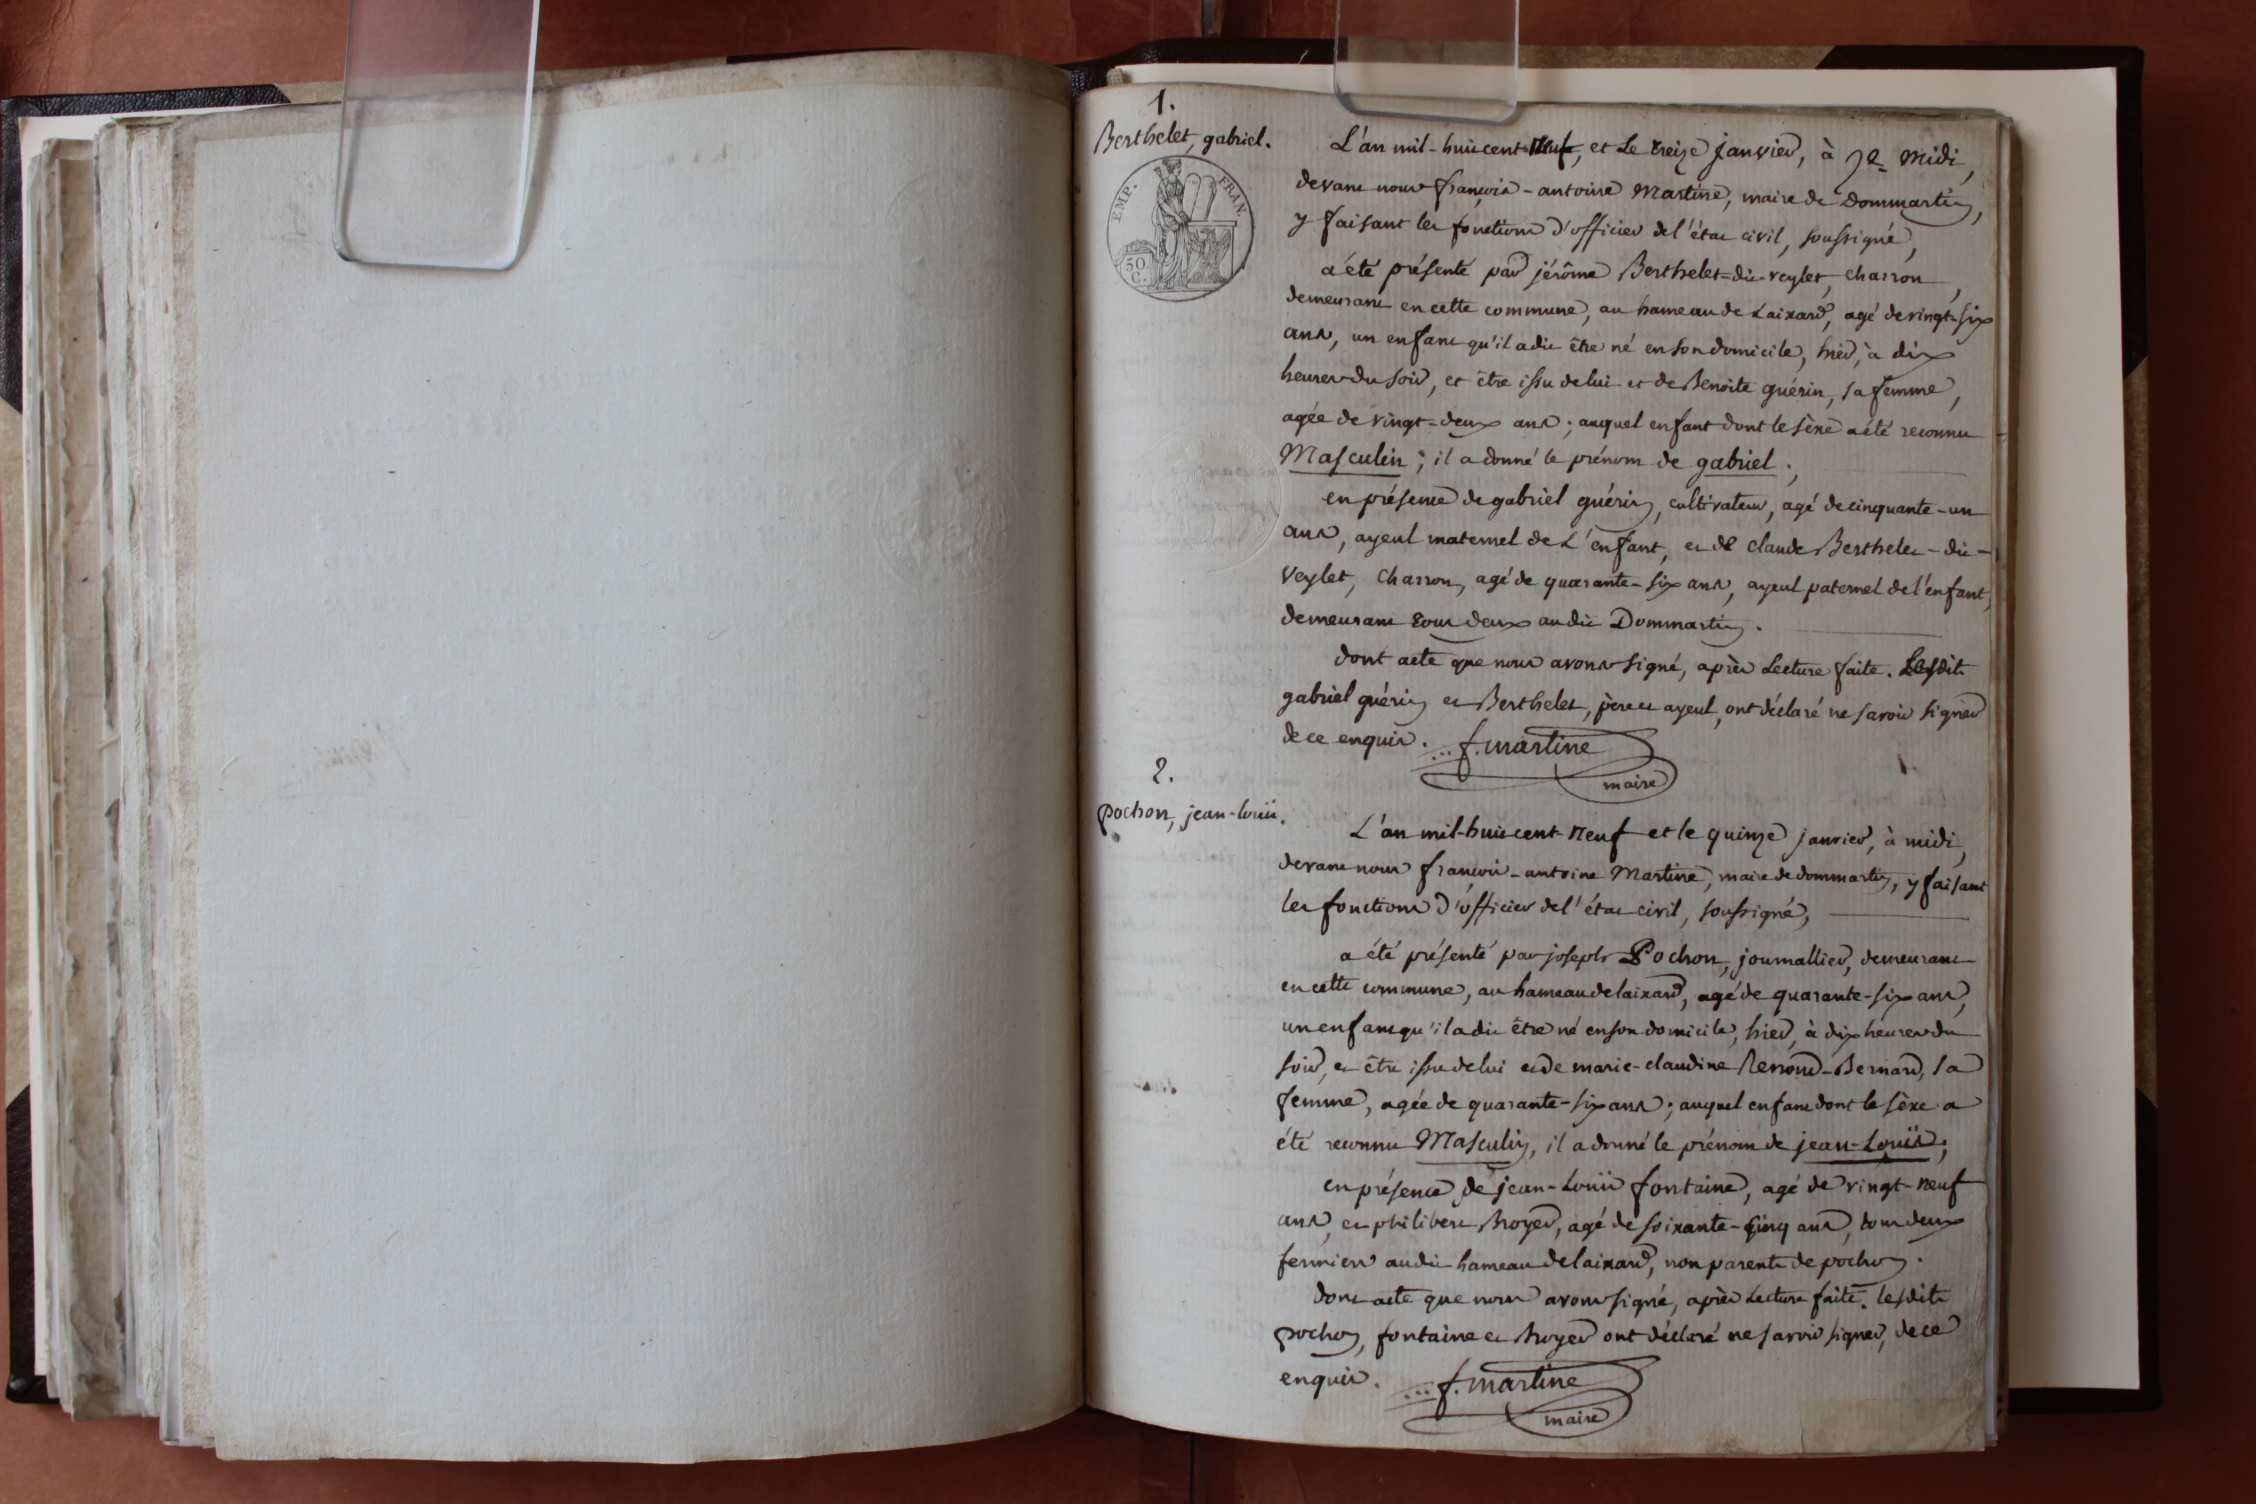 1.
Berthelet, gabriel.
EMP. FRAN.
50
C.
L'an mil-huit cent neuf, et Le treize janvier, à midi,
devant nous françois-antoine Martine, maire de Dommartin,
y faisant les fonctions d'officier de l'état civil, soussigné,
a été présenté par jérôme Berthelet-dit-veylet, charron,
demeurant en cette commune, au hameau de Laixard, agé de vingt-six
ans, un enfant qu'il a dit être né en son domicile, hier, à dix
heures du soir, et être issu de lui et de Benoite guérin, sa femme,
agée de vingt-deux ans; auquel enfant dont le sèxe a été reconnu
Masculin; il a donné le prénom de gabriel.
en présence de gabriel guérin, cultivateur, agé de cinquante-un
ans, ayeul maternel de L'enfant, et de claude Berthelet-dit-
Veylet, Charron, agé de quarante-six ans, ayeul paternel de l'enfant,
demeurant tous deux audit Dommartin.
dont acte que nous avons signé, après Lecture faite. Lesdits
gabriel guérin et Berthelet, père et ayeul, ont déclaré ne savoir signer
de ce enquis. f. martine
maire
2.
pochon, jean-louïs.
L'an mil-huit cent-neuf et le quinze janvier, à midi,
devant nous françois-antoine Martine, maire de dommartin, y faisant
les fonctions d'officier de l'état civil, soussigné,
a été présenté par joseph Pochon, journallier, demeurant
en cette commune, au hameau de laixard, agé de quarante-six ans,
un enfant qu'il a dit être né en son domicile, hier, à dix heures du
soir, et être issu de lui et de marie-claudine Bernard, sa
femme, agée de quarante-six ans; auquel enfant dont le sèxe a
été reconnu Masculin, il a donné le prénom de jean-Louïs;
en présence de jean-Louïs fontaine, agé de vingt-neuf
ans, et philibert Broyer, agé de soixante-cinq ans, tous deux
fermiers audit hameau de laixard, non parents de pochon.
dont acte que nous avons signé, après Lecture faite. lesdits
pochon, fontaine et Broyer ont déclaré ne savoir signer, de ce
enquis. f. martine
maire